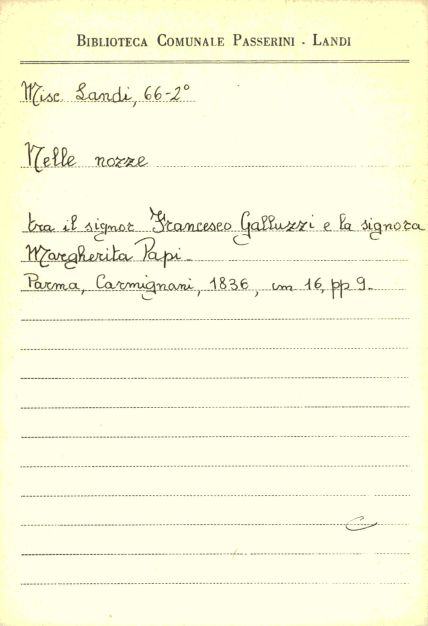 BIBLIOTECA COMUNALE PASSERINI - LANDI
Misc. Landi, 66-2°
Nelle nozze
tra il signor Francesco Galluzzi e la signora
Margherita Papi.
Parma, Carmignani, 1836, in 16, pp 9.
C